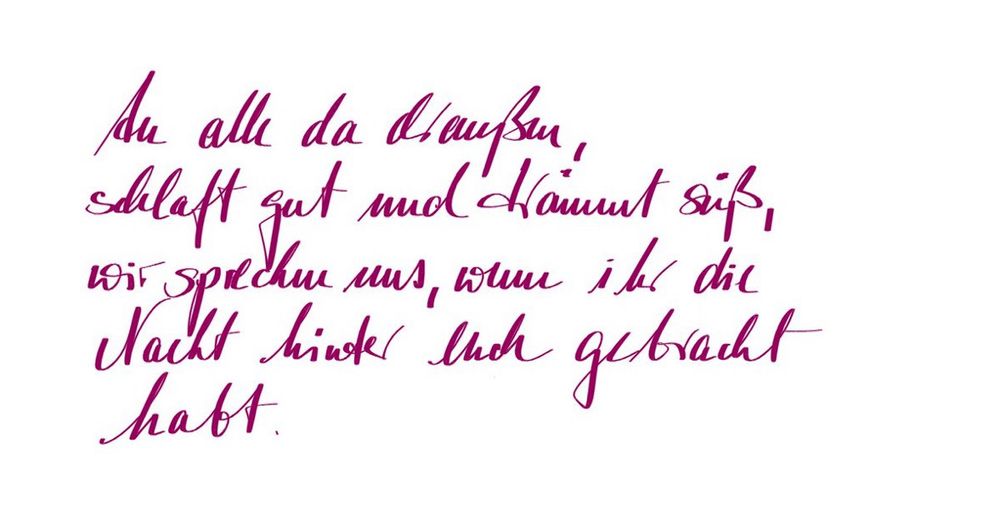 An alle da draußen,
schlaft gut und träumt süß,
wir sprechen uns, wenn ihr die
Nacht hinter euch gebracht
habt.